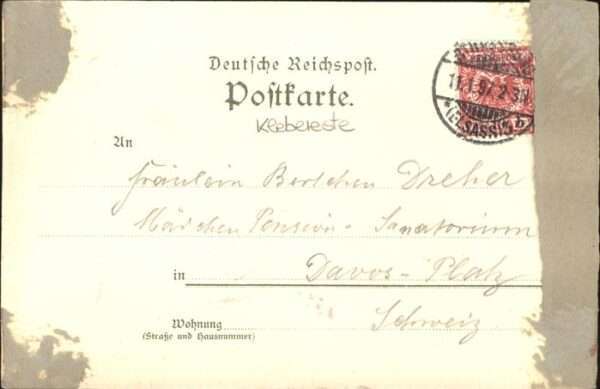 Deutsche Reichspost.
Postkarte.
Klebereste
An
Fräulein Berthchen Dreher
Mädchen Pension - Sanatorium
in Davos-Platz
Wohnung Schweiz
(Straße und Hausnummer)
11.1.97. 2-3N
*(ELSASS)* b